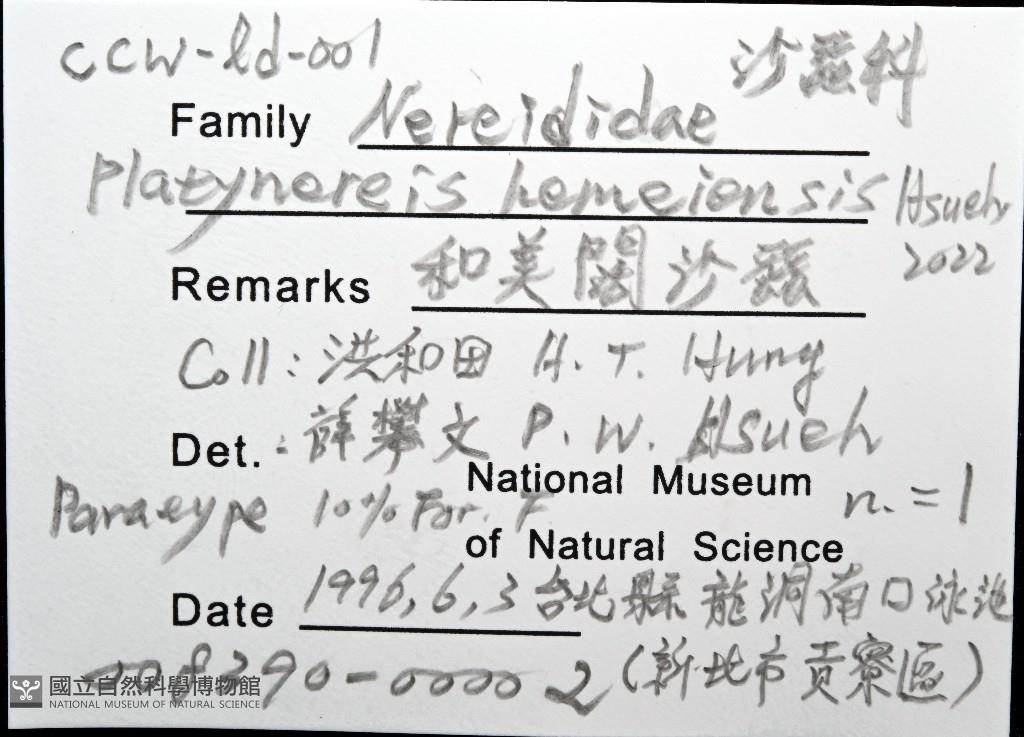 ccw-ld-001 沙蠶科
Family Nereididae
Platynereis hemeiensis Hsueh 2022
Remarks 和美闊沙蠶
Coll: 洪和田 H. T. Hung
Det. : 薛攀文 P. W. Hsueh
National Museum
Paratype 10% For. F n. = 1
of Natural Science
Date 1996, 6, 3 台北縣龍洞南口泳池
008290-00002 (新北市貢寮區)
國立自然科學博物館
NATIONAL MUSEUM OF NATURAL SCIENCE